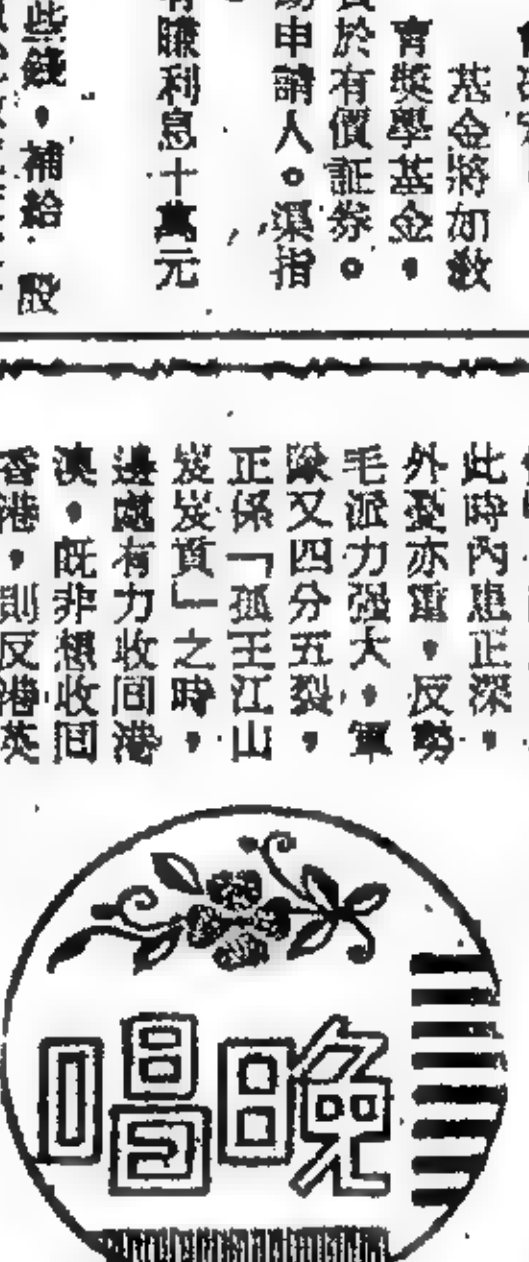 基金將加教
育獎學基金，
於有價証券。
申請人。渠指
賺利息十萬元
些錢，補給 殷
此時內患正深，
外憂亦重，反
毛派力强大，軍
隊又四分五裂，
正係「孤王江山
岌岌貢」之時，
邊處有力收回港
澳，既非想收回
香港，則反港英
晚唱